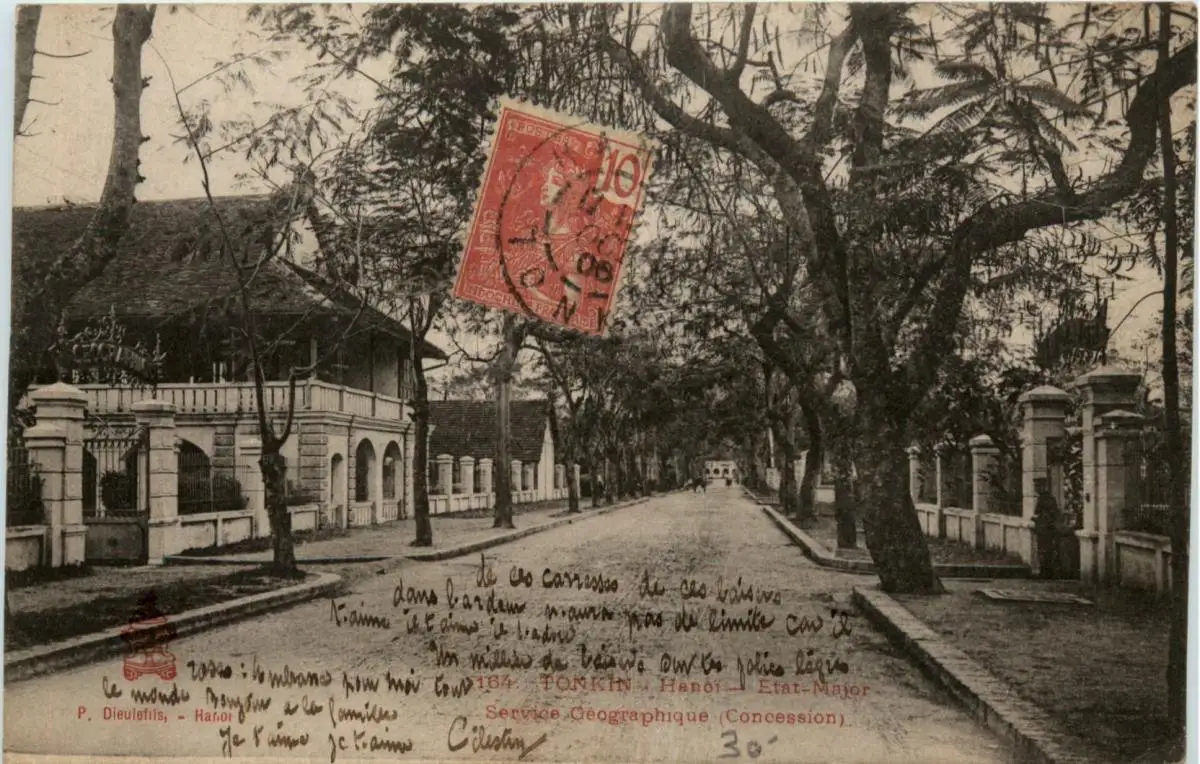 10
06
de ces carresses de ces baisers
dans l'ardeur n'aura pas de limite car il
t'aime il t'aime il t'adore
Un millier de baisers sur tes jolies lèvres
roses : embrasse pour moi tout
le monde Bonjour a la famille
Je t'aime je t'aime Célestin
164. TONKIN - Hanoï - Etat-Major
Service Géographique (Concession)
P. Dieulefils, - Hanoi
30-